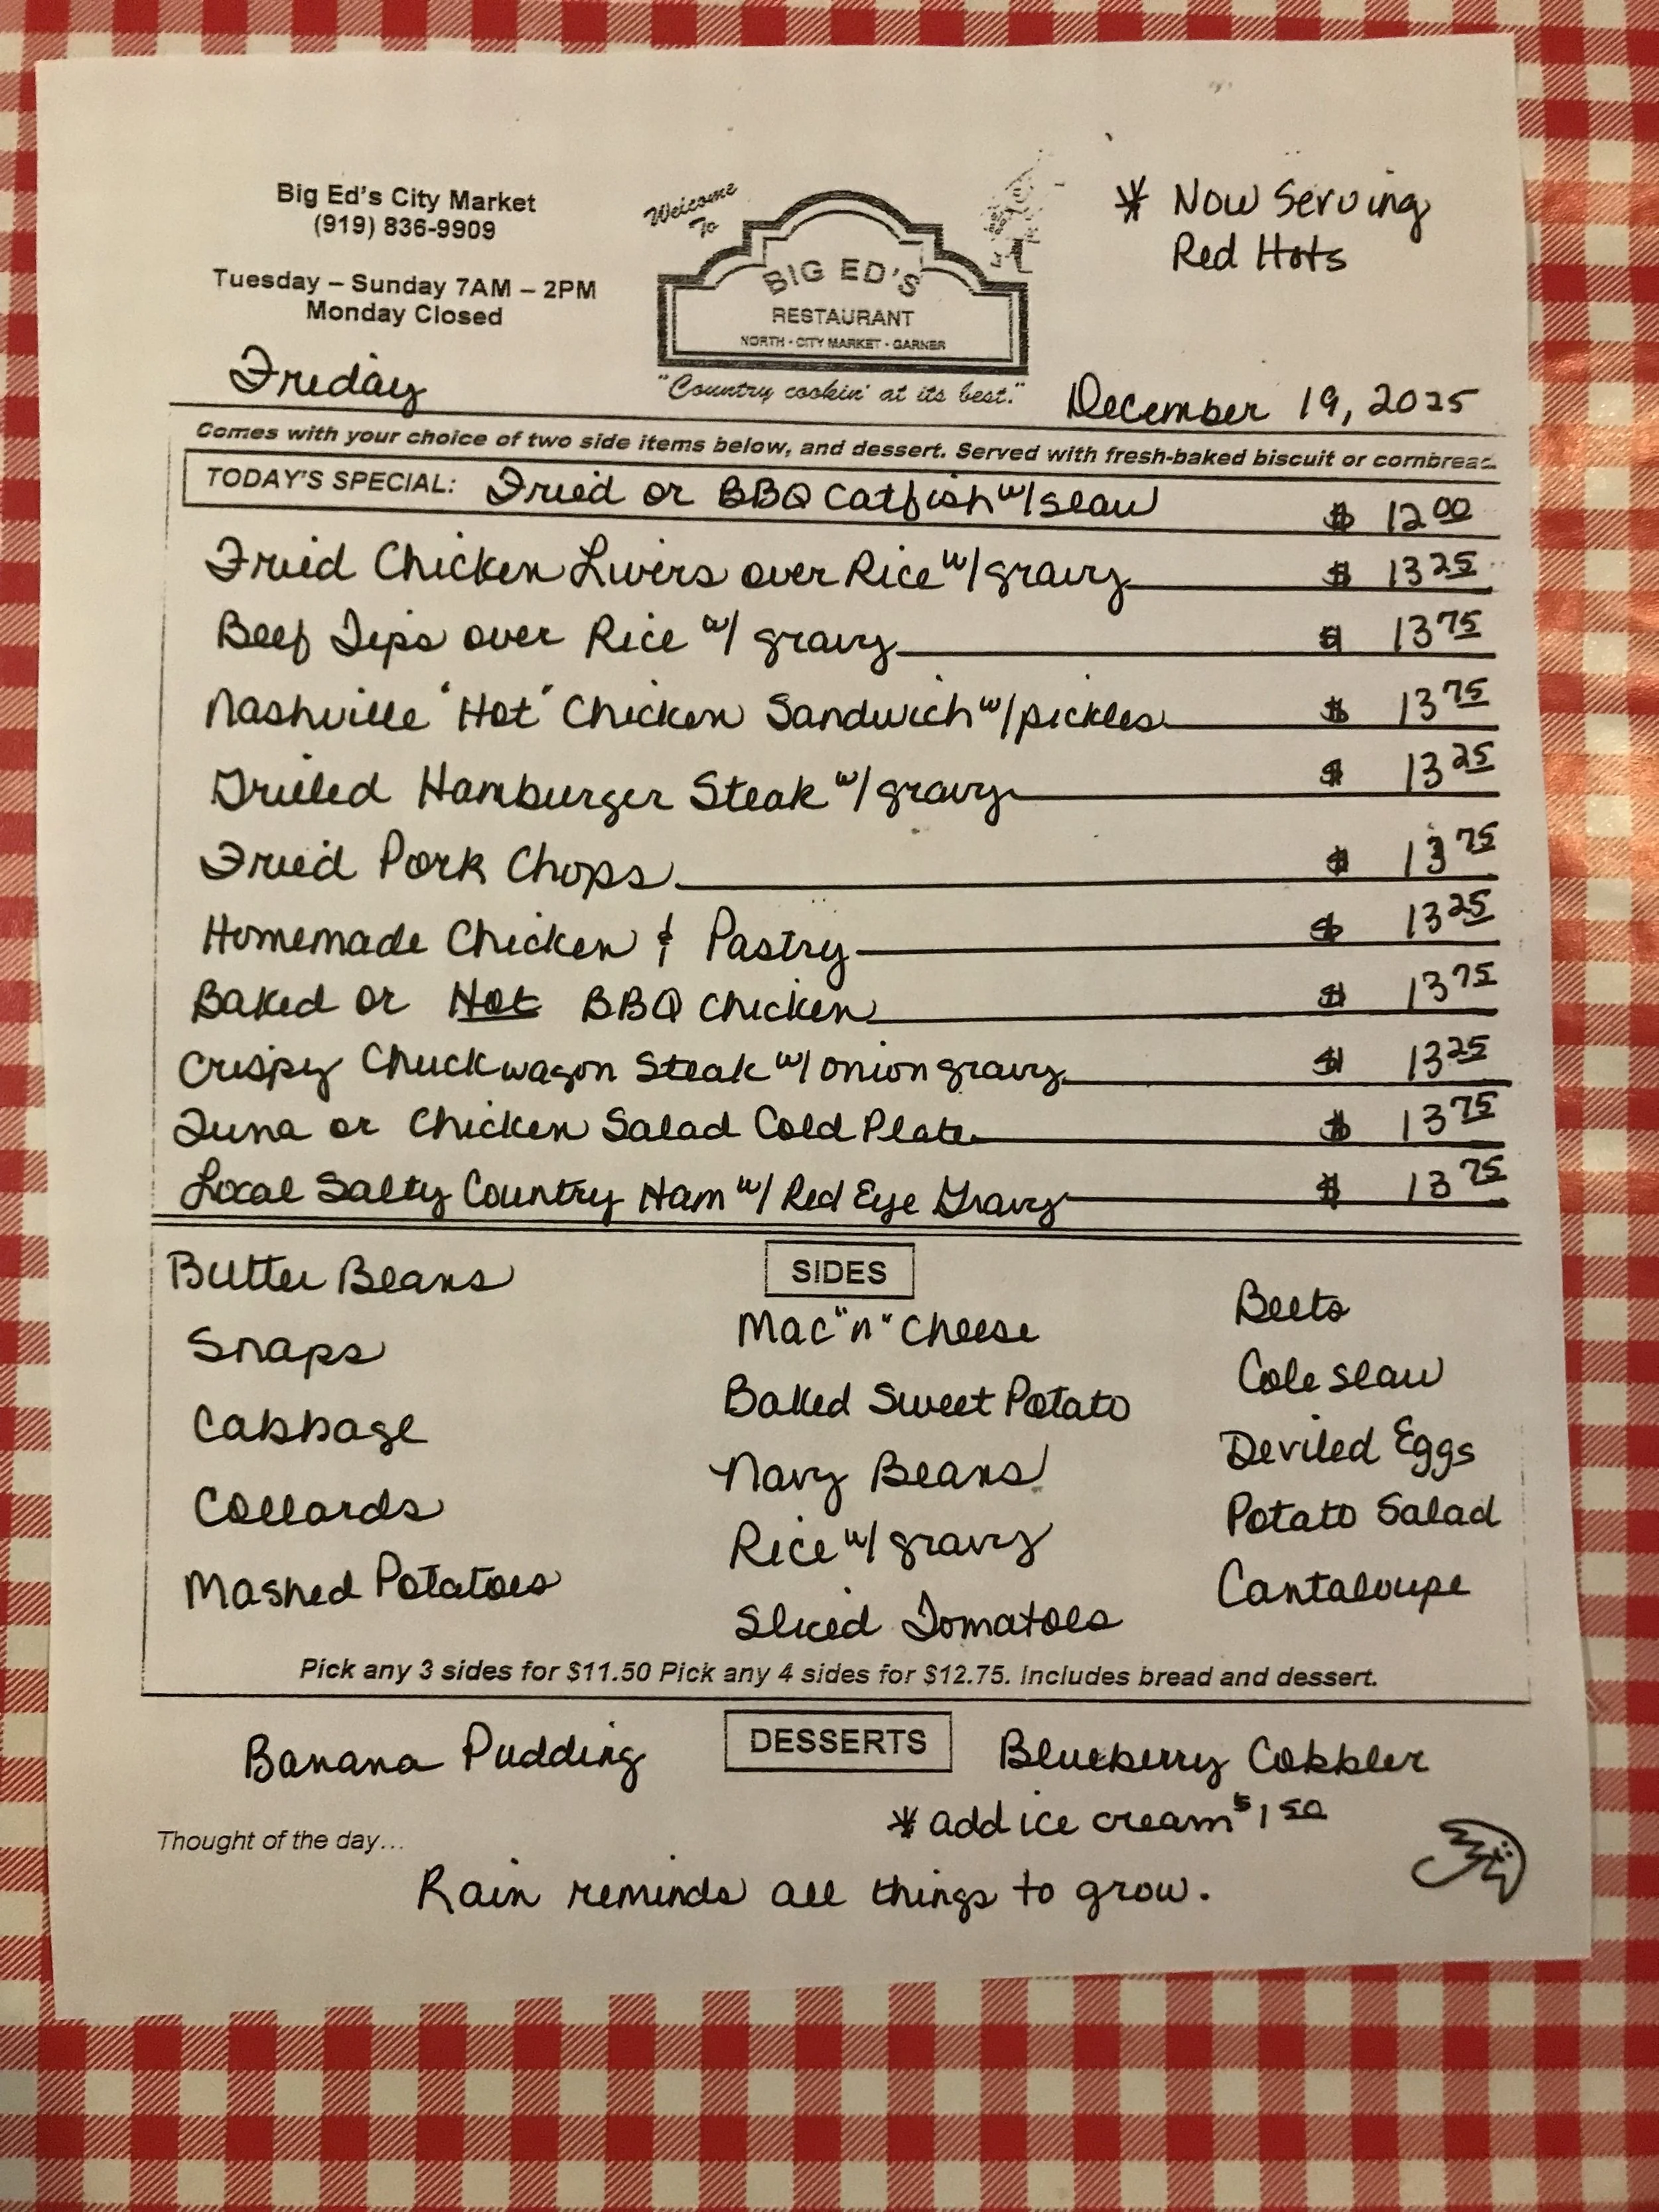 Big Ed's City Market
(919) 836-9909
Tuesday – Sunday 7AM – 2PM
Monday Closed
Welcome
To
BIG ED'S
RESTAURANT
NORTH - CITY MARKET - GARNER
"Country cookin' at its best."
* Now Serving
Red Hots
Friday
December 19, 2025
Comes with your choice of two side items below, and dessert. Served with fresh-baked biscuit or cornbread.
TODAY'S SPECIAL: Fried or BBQ Catfish w/slaw $ 12 00
Fried Chicken Livers over Rice w/gravy $ 13 25
Beef Tips over Rice w/ gravy $ 13 75
Nashville "Hot" Chicken Sandwich w/pickles $ 13 75
Grilled Hamburger Steak w/gravy $ 13 25
Fried Pork Chops $ 13 75
Homemade Chicken & Pastry $ 13 25
Baked or Hot BBQ Chicken $ 13 75
Crispy Chuckwagon Steak w/ onion gravy $ 13 25
Tuna or Chicken Salad Cold Plate $ 13 75
Local Salty Country Ham w/ Red Eye Gravy $ 13 75
SIDES
Butter Beans
Snaps
Cabbage
Collards
Mashed Potatoes
Mac "n" Cheese
Baked Sweet Potato
Navy Beans
Rice w/ gravy
Sliced Tomatoes
Beets
Cole slaw
Deviled Eggs
Potato Salad
Cantaloupe
Pick any 3 sides for $11.50 Pick any 4 sides for $12.75. Includes bread and dessert.
DESSERTS
Banana Pudding
Blueberry Cobbler
* add ice cream $1 50
Thought of the day...
Rain reminds all things to grow.